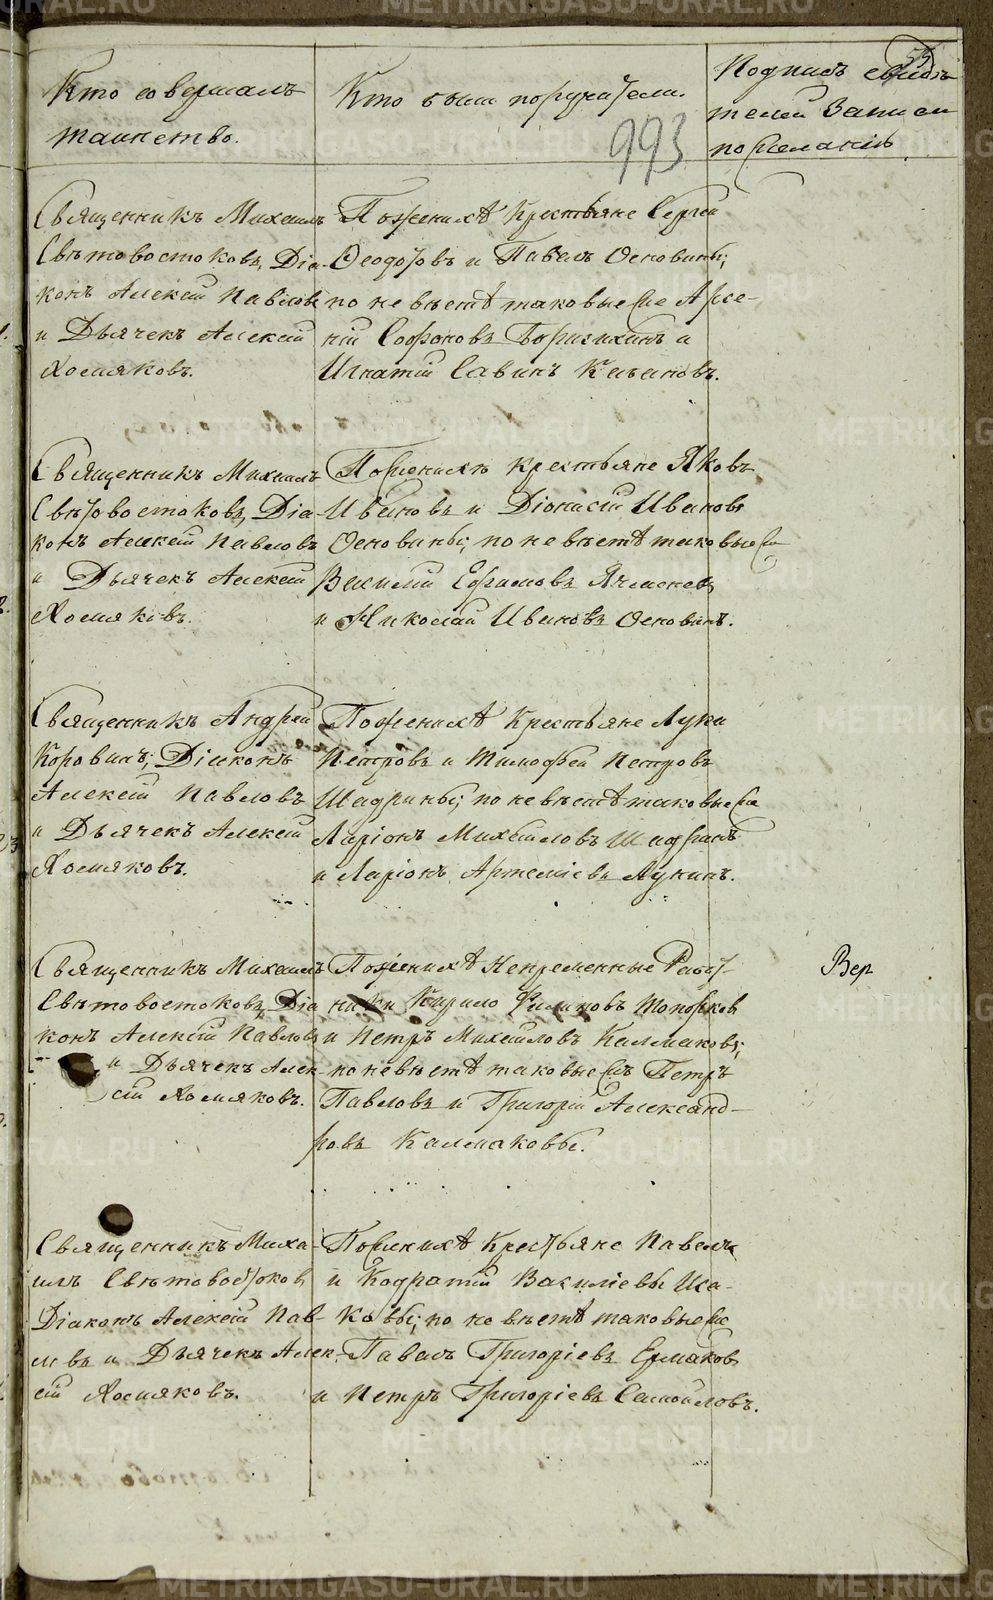 55
Кто совершалъ
таинство.
Кто были поручители.
993
Подпись свидѣ-
телей записи
по желанію.
Священникъ Михаилъ
Свѣтовостоковъ, Діа-
конъ Алексій Павловъ
и Дьячекъ Алексій
Хомяковъ.
По женихѣ Крестьяне Сергей
Ѳеодотовъ и Павелъ Основины;
по невѣстѣ таковые же Арсе-
ній Софоновъ и
Игнатій Савинъ
Священникъ Михаилъ
Свѣтовостоковъ, Діа-
конъ Алексій Павловъ
и Дьячекъ Алексій
Хомяковъ.
По женихѣ крестьяне Яковъ
Ивановъ и Діонисій Ивановъ
Основины; по невѣстѣ таковые же
Василій Ефимовъ Ячменевъ
и Николай Ивановъ Основинъ.
Священникъ Андрей
Коровинъ; Діаконъ
Алексій Павловъ
и Дьячекъ Алексій
Хомяковъ.
По женихѣ Крестьяне Лука
Петровъ и Тимофей Петровъ
Шадрины; по невѣстѣ таковые же
Ларіонъ Михайловъ Шадринъ
и Ларіонъ Артеміевъ Лунинъ.
Священникъ Михаилъ
Свѣтовостоковъ, Діа
конъ Алексій Павловъ
и Дьячекъ Алек-
сій Хомяковъ.
По женихѣ Непременные Работ-
ники Кирило Филиповъ Топорков
и Петръ Михайловъ Калмаковъ;
по невѣстѣ таковые жъ Петръ
Павловъ и Григорій Александ-
ровъ Калмаковы.
Вер
Священникъ Миха-
илъ Свѣтовостоков
Діаконъ Алексій Пав-
ловъ и Дьячекъ Алек-
сій Хомяковъ.
По женихѣ Крестьяне Павелъ
и Кодратій Василіевы Иса-
ковы; по невѣстѣ таковые же
Павелъ Григоріевъ Ермаков
и Петръ Григоріевъ Самойловъ.
METRIKI.GASO-URAL.RU